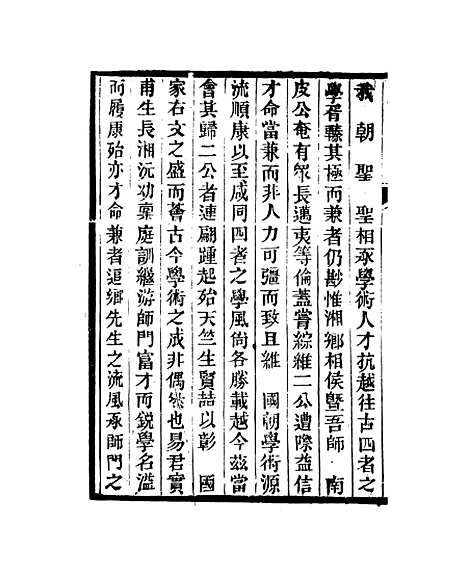 我 朝聖 聖相承學術人才抗越往古四者之
學胥臻其極而兼者仍尠惟湘鄉相侯曁吾師 南
皮公奄有衆長邁夷等倫蓋嘗綜維二公遭際益信
才命當兼而非人力可彊而致且維 國朝學術源
流順康以至咸同四者之學風尙各勝載越今茲當
會其歸二公者連翩踵起殆天竺生賢喆以彰 國
家右文之盛而薈古今學術之成非偶然也易君實
甫生長湘沅幼稟庭訓繼游師門富才而銳學名溢
而履康殆亦才命兼者洹鄉先生之流風承師門之